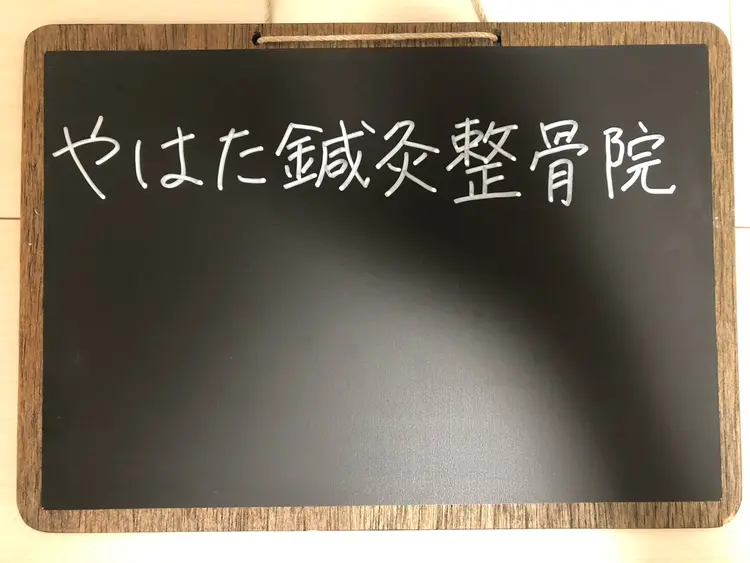 やはた鍼灸整骨院